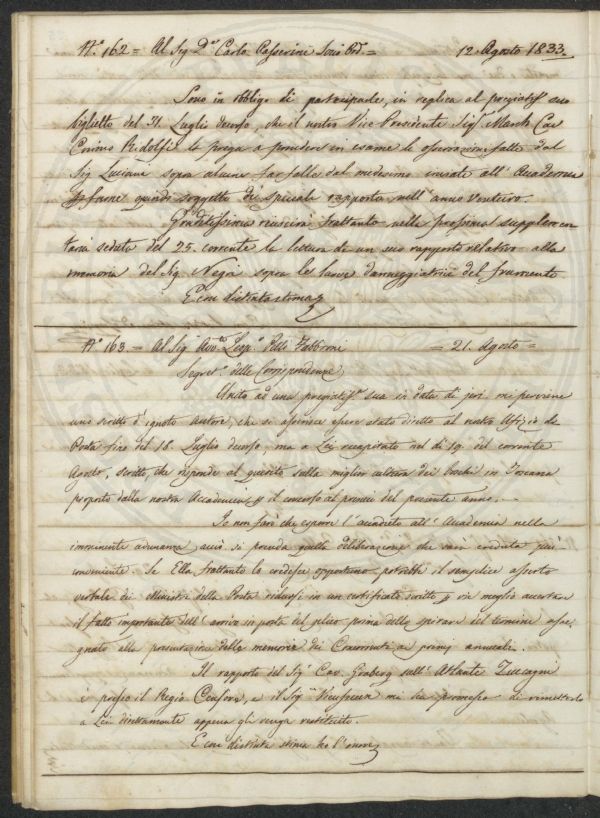 N.º 162 = Al Sig. D.r Carlo Passerini Socio Ord.º = 12. Agosto 1833.
Sono in obbligo di parteciparle, in replica al pregiatiss.º suo
biglietto del 31. Luglio decorso, che il nostro Vice-Presidente Sig.r March. Cav.
Cosimo Ridolfi la prega a prendere in esame le osservazioni fatte dal
Sig. Luciani sopra alcune farfalle dal medesimo inviate all'Accademia
p farne quindi soggetto di speciale rapporto nell'anno venturo.
Graditissima riuscirà frattanto nella prossima supplemen
taria seduta del 25. corrente la lettura di un suo rapporto relativo alla
memoria del Sig. Nega sopra le larve danneggiatrici del frumento
E con distinta stima
N.º 163. = Al Sig.r Avv.to Leop.º Pelli Fabbroni = 21. Agosto =
Segret.º delle Corrispondenze
Unito ad una pregiatiss.ª sua in data di jeri mi perviene
uno scritto d'ignoto Autore, che si asserisce essere stato diretto al nostro Ufizio di
Posta fino del 18. Luglio decorso, ma a Lei recapitato nel dì 19. del corrente
Agosto, scritto, che risponde al quesito sulla miglior cultura dei Boschi in Toscana
proposto dalla nostra Accademia p il concorso al premio del presente anno. —
Io non farò che esporre l'accaduto all'Accademia nella
imminente adunanza, acciò si prenda quella deliberazione che sarà creduta più
conveniente. Se Ella frattanto lo credesse opportuno potrebbe il semplice asserto
verbale dei Ministri della Posta ridursi in un certificato scritto p vie meglio accertare
il fatto importante dell'arrivo in posta del plico prima dello spirare del termine asse,
gnato alla presentazione delle memorie dei Concorrenti ai premj annuali.
Il rapporto del Sig.r Cav. Graberg sull'Atlante Zuccagni
è presso il Regio Censore, e il Sig.r Vieusseux mi ha promesso di rimetterlo
a Lei direttamente appena gli venga restituito.
E con distinta stima ho l'onore